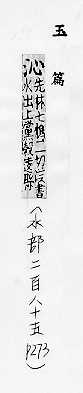 玉篇
沁 先林七鴆二切
水出上黨穀遠縣
(水部二百八十五 P273)